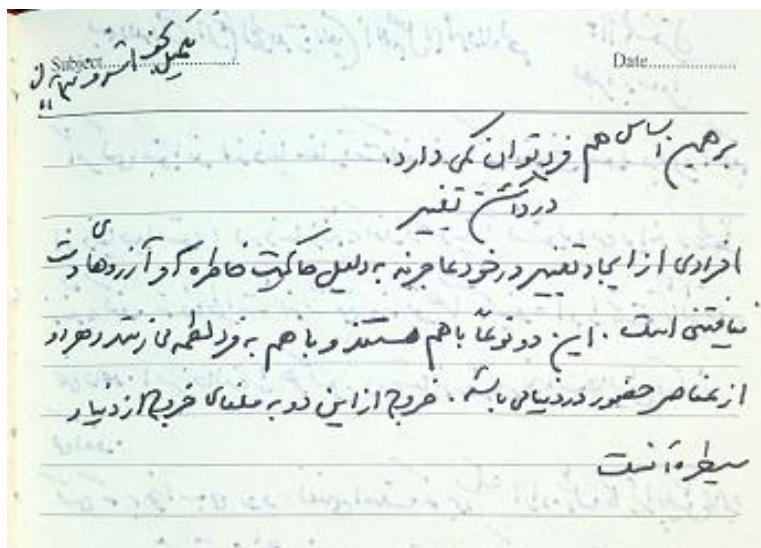 Subject
Date
بر همین اساس هم فرد توان کمی دارد.
در داشتن تغییر
افرادی از ایجاد تغییر در خود عاجزند به دلیل حاکمیت خاطره و آرزوهای دست
نیافتنی است. این دو توماً با هم هستند و با هم به فرد لطمه می زنند و هر دو
از عناصر حضور در دنیا می باشد. خروج از این دو به معنای خروج از دنیا و
سیطره آنست